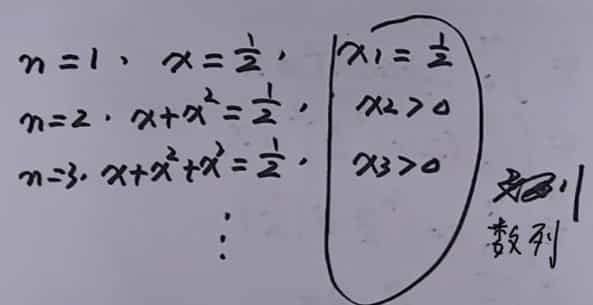 n=1, x=1/2, x₁=1/2
n=2, x+x²=1/2, x₂>0
n=3, x+x²+x³=1/2, x₃>0
⋮
数列